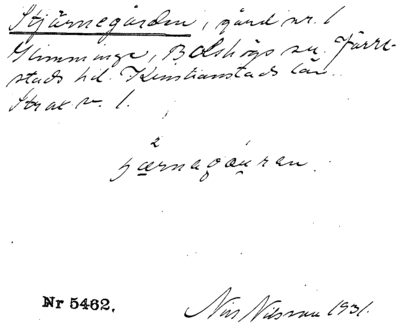 Stjärnegården, gård nr. 1
Glimminge, Bolshögs sn. Järre-
stads hd. Kristianstads län.
Strax v. 1.
Nr 5462.
Nils Nilsson 1931.